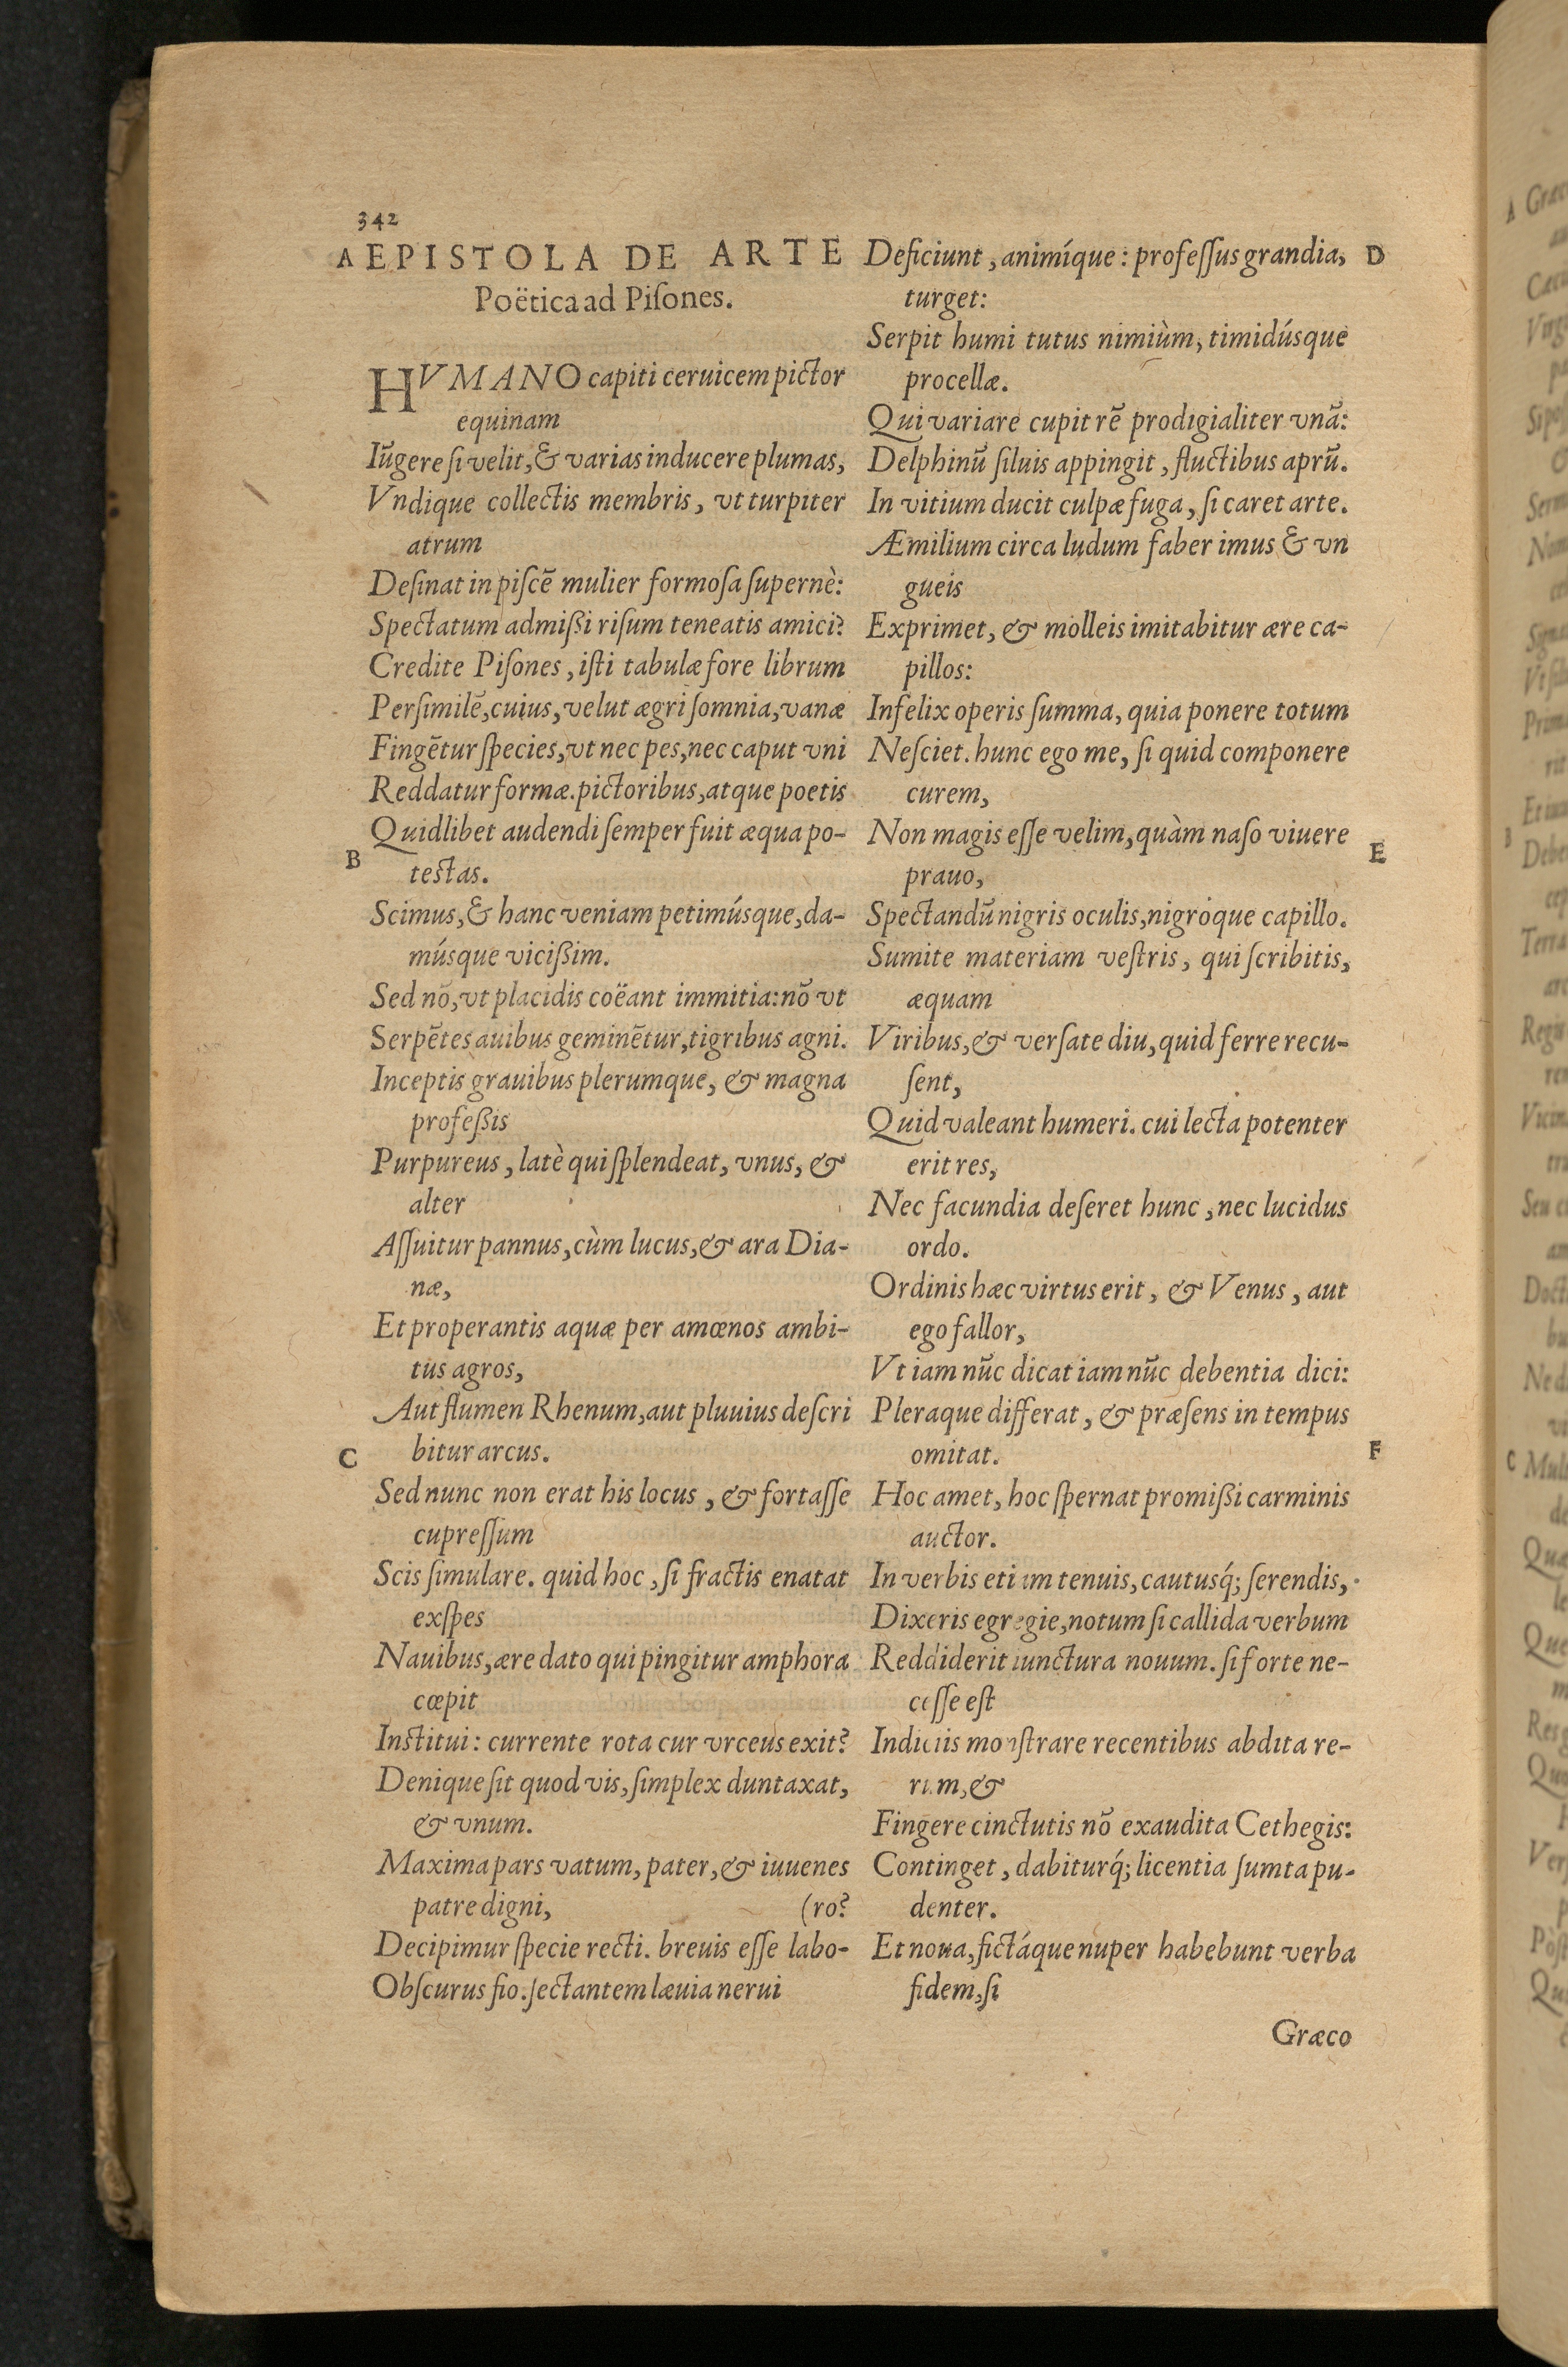 342
A EPISTOLA DE ARTE
Poëtica ad Piſones.
HVMANO capiti ceruicem pictor
equinam
Iūgere ſi velit, & varias inducere plumas,
Vndique collectis membris, vt turpiter
atrum
Deſinat in piſcē mulier formoſa ſupernè:
Spectatum admißi riſum teneatis amici?
Credite Piſones, iſti tabulæ fore librum
Perſimilē, cuius, velut ægri ſomnia, vanæ
Fingētur ſpecies, vt nec pes, nec caput vni
Reddatur formæ. pictoribus, atque poetis
Quidlibet audendi ſemper fuit æqua po-
B
testas.
Scimus, & hanc veniam petimúsque, da-
músque vicißim.
Sed nō, vt placidis coëant immitia: nō vt
Serpētes auibus geminētur, tigribus agni.
Inceptis grauibus plerumque, & magna
profeßis
Purpureus, latè qui ſplendeat, vnus, &
alter
Aſſuitur pannus, cùm lucus, & ara Dia-
næ,
Et properantis aquæ per amœnos ambi-
tus agros,
Aut flumen Rhenum, aut pluuius deſcri
C bitur arcus.
Sed nunc non erat his locus, & fortaſſe
cupreſſum
Scis ſimulare. quid hoc, ſi fractis enatat
exſpes
Nauibus, ære dato qui pingitur amphora
cœpit
Institui: currente rota cur vrceus exit?
Denique ſit quod vis, ſimplex duntaxat,
& vnum.
Maxima pars vatum, pater, & iuuenes
patre digni, (ro?
Decipimur ſpecie recti. breuis eſſe labo-
Obſcurus fio. ſectantem læuia nerui
Deficiunt, animíque: profeſſus grandia, D
turget:
Serpit humi tutus nimiùm, timidúsque
procellæ.
Qui variare cupit rē prodigialiter vnā:
Delphinū ſiluis appingit, fluctibus aprū.
In vitium ducit culpæ fuga, ſi caret arte.
Æmilium circa ludum faber imus & vn
gueis
Exprimet, & molleis imitabitur ære ca-
pillos:
Infelix operis ſumma, quia ponere totum
Neſciet. hunc ego me, ſi quid componere
curem,
Non magis eſſe velim, quàm naſo viuere
E
prauo,
Spectandū nigris oculis, nigróque capillo.
Sumite materiam veſtris, qui ſcribitis,
æquam
Viribus, & verſate diu, quid ferre recu-
ſent,
Quid valeant humeri. cui lecta potenter
erit res,
Nec facundia deſeret hunc, nec lucidus
ordo.
Ordinis hæc virtus erit, & Venus, aut
ego fallor,
Vt iam nūc dicat iam nūc debentia dici:
Pleraque differat, & præſens in tempus
omitat. F
Hoc amet, hoc ſpernat promißi carminis
auctor.
In verbis etiam tenuis, cautusq́; ſerendis,
Dixeris egregie, notum ſi callida verbum
Reddiderit iunctura nouum. ſi forte ne-
ceſſe eſt
Indiciis monſtrare recentibus abdita re-
rum, &
Fingere cinctutis nō exaudita Cethegis:
Continget, dabiturq́; licentia ſumta pu-
denter.
Et noua, fictáque nuper habebunt verba
fidem, ſi
Græco